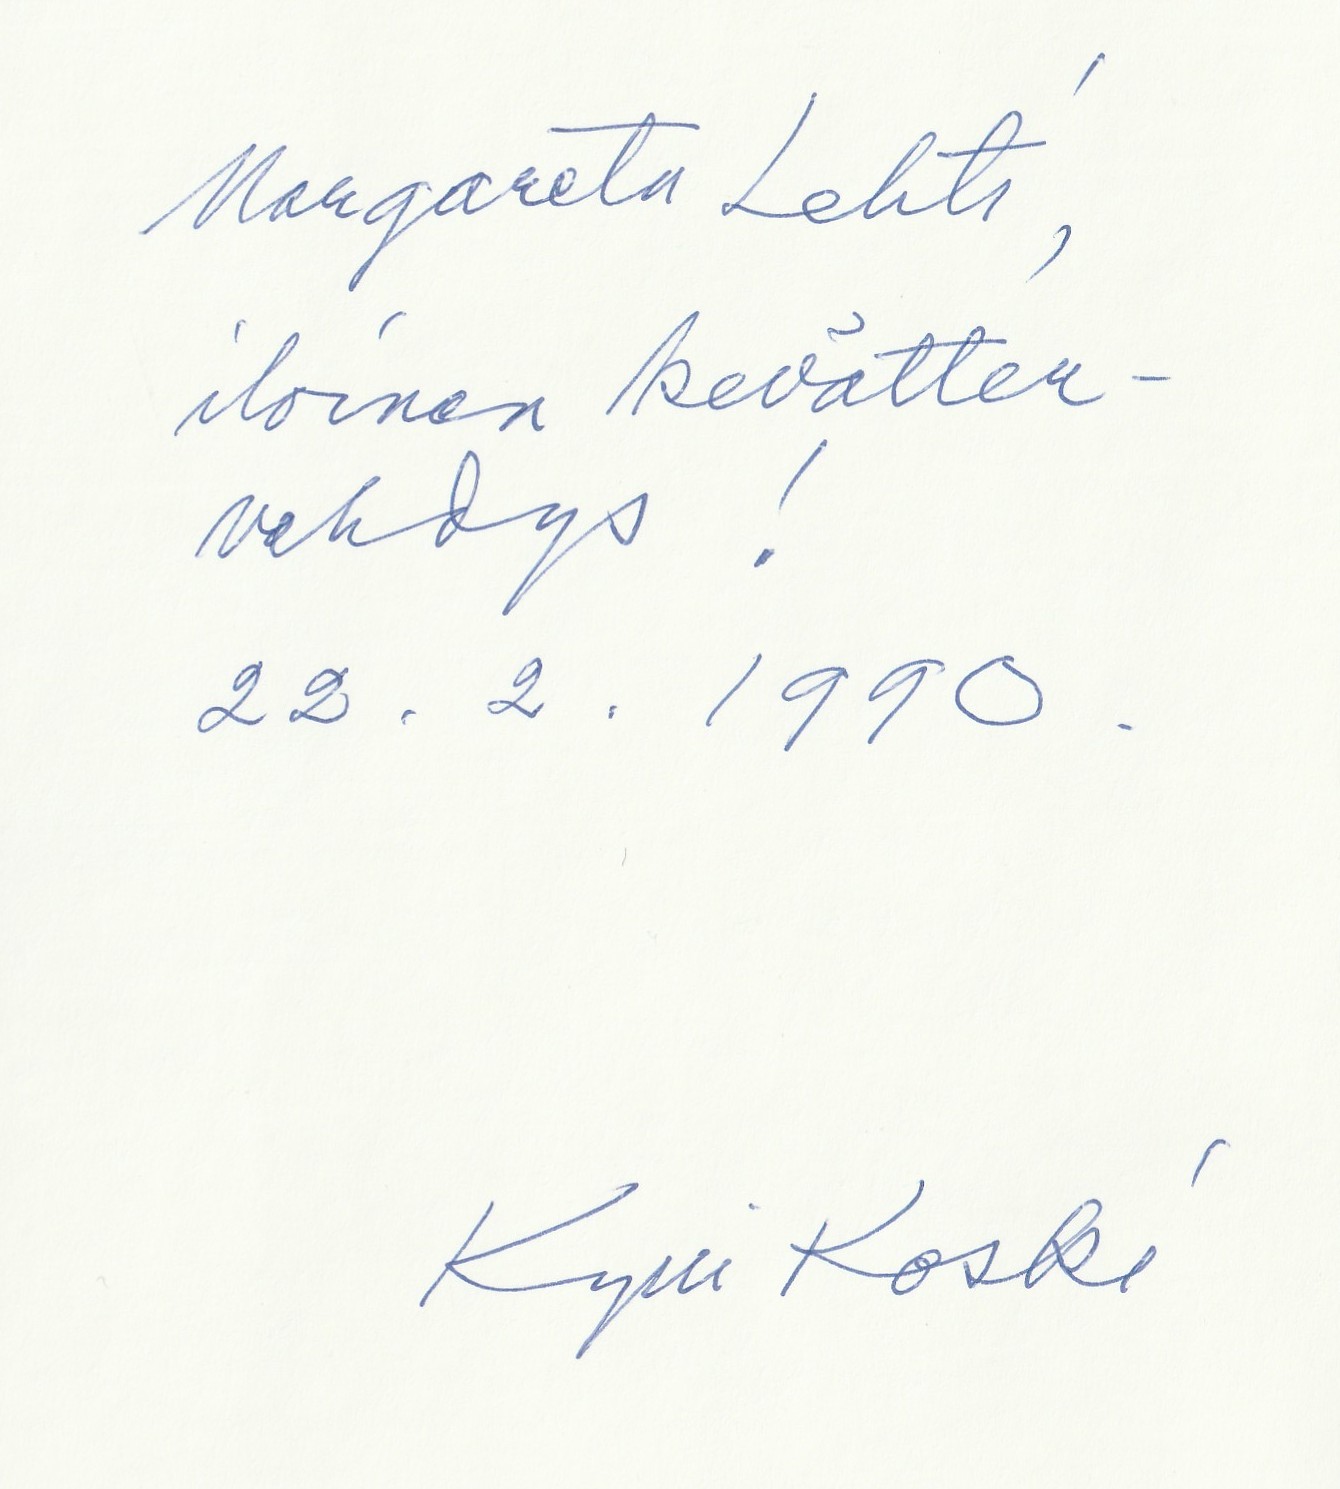 Margareta Lehti,
iloinen kevätter-
vehdys!
22.2.1990.
Kyni Koski